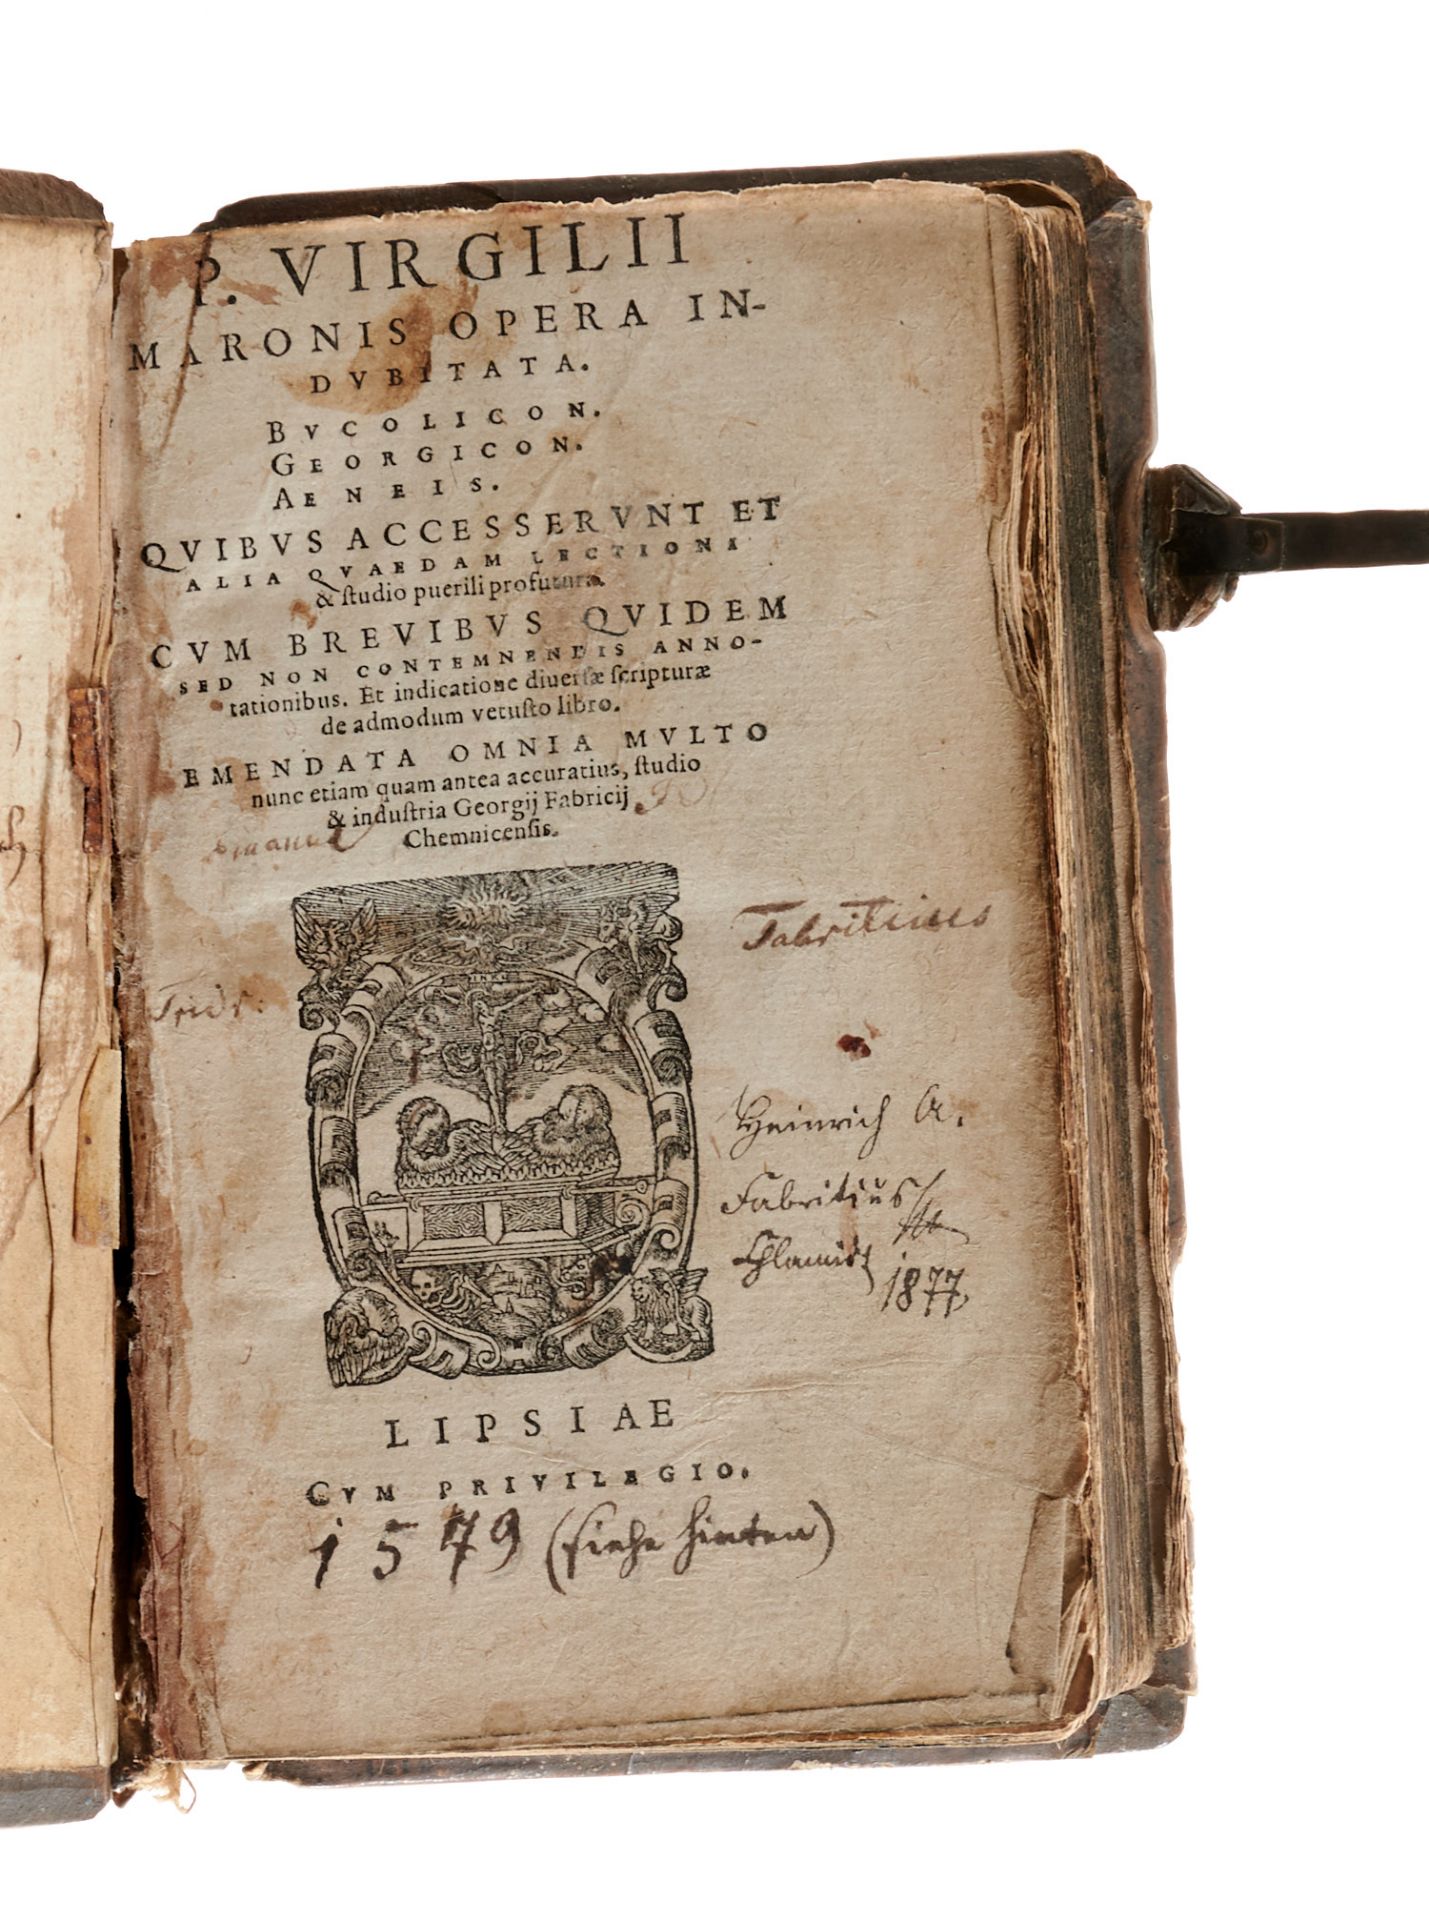 P. VIRGILII
MARONIS OPERA IN-
DVBITATA.
BVCOLICON.
GEORGICON.
AENEIS.
QVIBVS ACCESSERVNT ET
ALIA QVAEDAM LECTIONI
& ſtudio puerili profutura.
CVM BREVIBVS QVIDEM
SED NON CONTEMNENDIS ANNO-
tationibus. Et indicatione diuerſæ ſcripturæ
de admodum vetuſto libro.
EMENDATA OMNIA MVLTO
nunc etiam quam antea accuratius, ſtudio
& induſtria Georgij Fabricij
Chemnicenſis.
Fabritius
Fridr.
INRI
Heinrich A.
Fabritius
1877
LIPSIAE
CVM PRIVILEGIO.
1579 (siehe hinten)